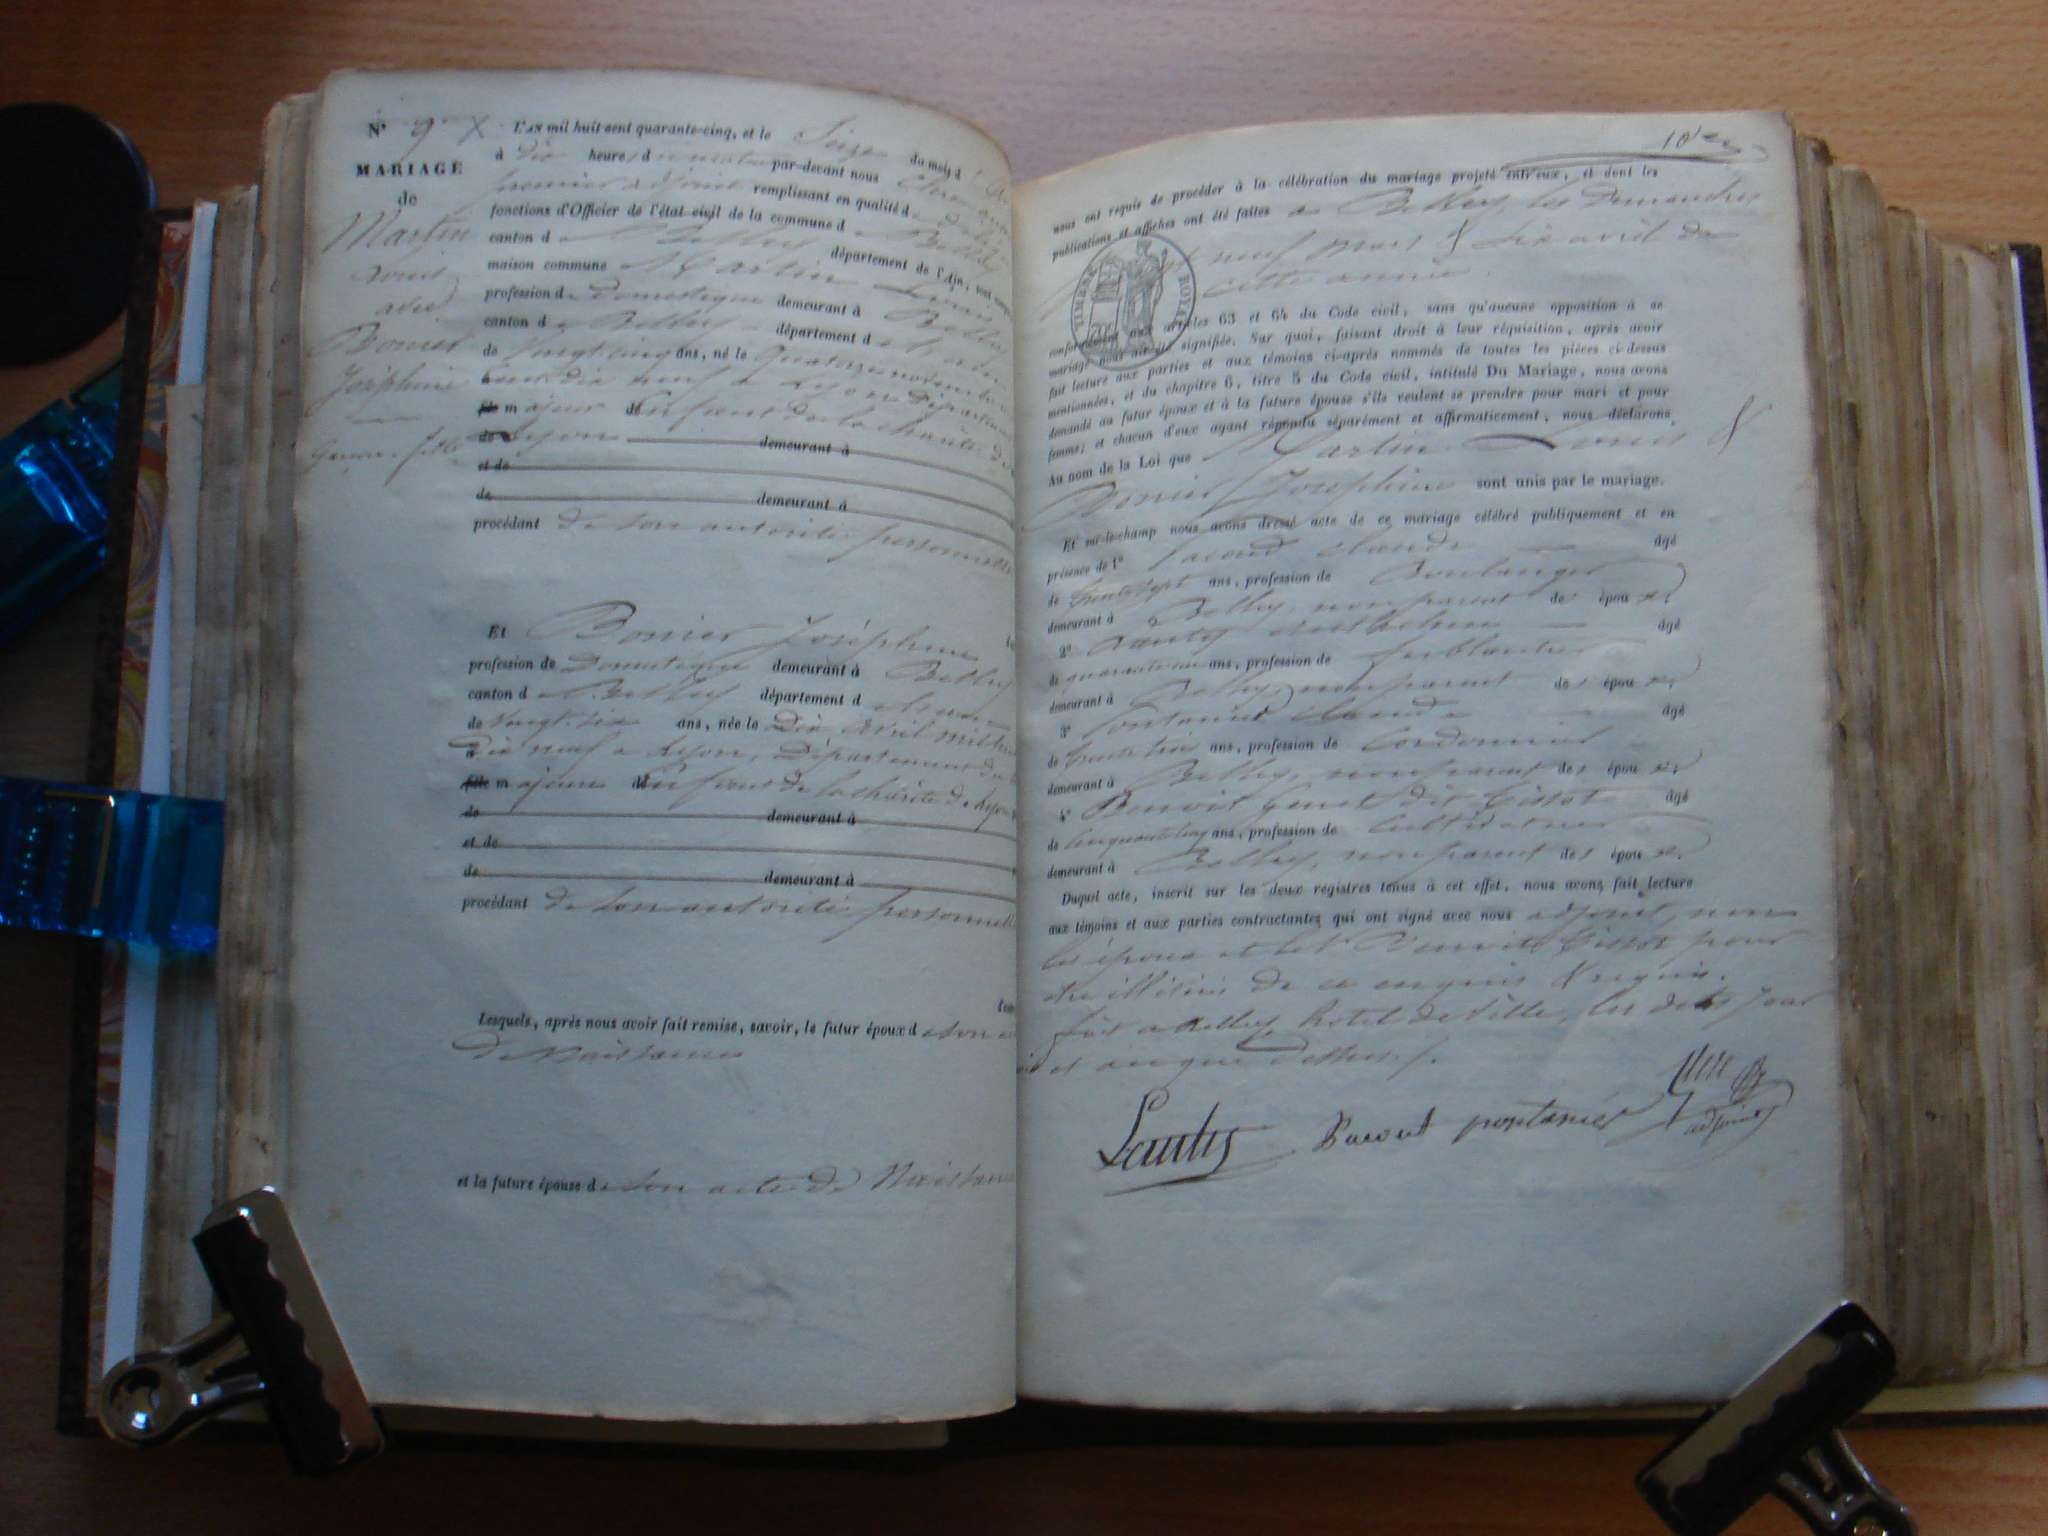 N° 9 X
MARIAGE
de
Martin
Louis
avec
Bonier
Joséphine
Garçon. fille
L'AN mil huit cent quarante-cinq, et le Seize du mois d
à dix heures du matin par-devant nous
premier adjoint remplissant en qualité d
fonctions d'Officier de l'état civil de la commune de Belley
canton de Belley département de l'Ain, sont
maison commune Martin Louis
profession de Domestique demeurant à Belley
canton de Belley département de l'ain
de vingt cinq ans, né le quatorze novembre
dix neuf à Lyon département
fils majeur de Enfant de la charité de
de Lyon demeurant à
et de
de demeurant à
procédant de son autorité personnelle
Et Bonier Joséphine
profession de Domestique demeurant à Belley
canton de Belley département de l'ain
de vingt-six ans, née le Dix Avril mil
dix neuf à Lyon, Département du
fille majeure de Enfant de la charité de Lyon
de demeurant à
et de
de demeurant à
procédant de son autorité personnelle
Lesquels, après nous avoir fait remise, savoir, le futur époux de son
de Naissance
et la future épouse de son acte de Naissance
nous ont requis de procéder à la célébration du mariage projeté entr'eux, et dont les
publications et affiches ont été faites à Belley, les Dimanches
neuf mars & six avril de
cette année.
TIMBRE ROYAL
conformément aux articles 63 et 64 du Code civil, sans qu'aucune opposition à ce
mariage nous ait été signifiée. Sur quoi, faisant droit à leur réquisition, après avoir
fait lecture aux parties et aux témoins ci-après nommés de toutes les pièces ci-dessus
mentionnées, et du chapitre 6, titre 5 du Code civil, intitulé Du Mariage, nous avons
demandé au futur époux et à la future épouse s'ils veulent se prendre pour mari et pour
femme; et chacun d'eux ayant répondu séparément et affirmativement, nous déclarons
Au nom de la Loi que Martin Louis &
Bonier Joséphine sont unis par le mariage.
Et sur-le-champ nous avons dressé acte de ce mariage célébré publiquement et en
présence de 1° Claude âgé
de trente sept ans, profession de Boulanger
demeurant à Belley, non parent des époux.
2° Lauty Anthelme âgé
de ans, profession de ferblantier
demeurant à Belley, non parent des époux.
3° Pontanier Claude âgé
de trente trois ans, profession de Cordonnier
demeurant à Belley, non parent des époux.
4° Benoit Genet dit Tissot âgé
de cinquante cinq ans, profession de Cultivateur
demeurant à Belley, non parent des époux.
Duquel acte, inscrit sur les deux registres tenus à cet effet, nous avons fait lecture
aux témoins et aux parties contractantes qui ont signé avec nous adjoint, non
les époux et le Benoit Tissot pour
être illitérés de ce enquis & requis.
fait à Belley, hotel de ville, les dits jour
et an que dessus.
Lauty pontanier
adjoint